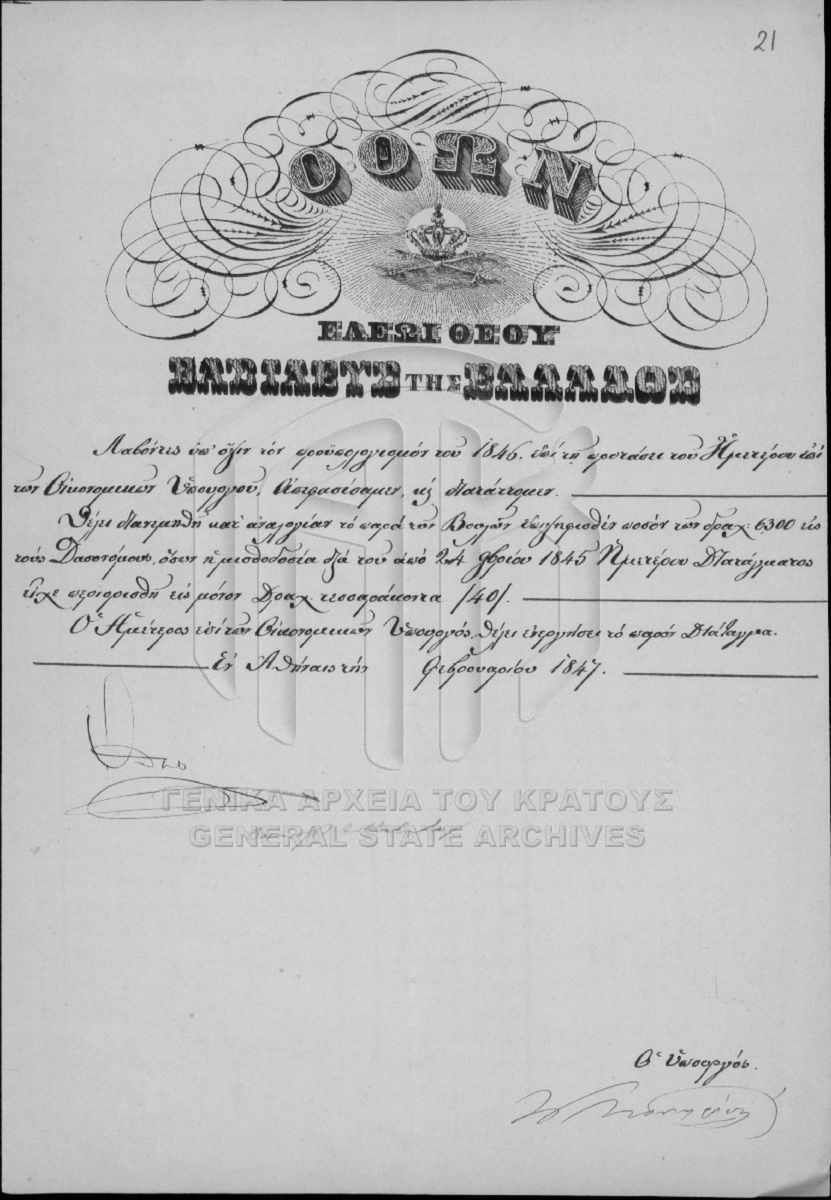 21
ΟΘΩΝ
ΕΛΕΩΙ ΘΕΟΥ
ΒΑΣΙΛΕΥΣ ΤΗΣ ΕΛΛΑΔΟΣ
Λαβόντες ὑπ' ὄψιν τὸν προϋπολογισμὸν τοῦ 1846, ἐπὶ τῇ προτάσει τοῦ Ἡμετέρου ἐπὶ
τῶν Οἰκονομικῶν Ὑπουργοῦ, Ἀπεφασίσαμεν, κ διατάττομεν.
Θέλει διανεμηθῆ κατ' ἀναλογίαν τὸ παρὰ τῶν Βουλῶν ἐπιψηφισθὲν ποσὸν τῶν δραχ: 6,300 εἰς
τοὺς Δασονόμους, ὅσων ἡ μισθοδοσία διὰ τοῦ ἀπὸ 24 9βρίου 1845 Ἡμετέρου Διατάγματος
εἶχε περιορισθῆ εἰς μόνον Δραχ. τεσσαράκοντα /40/.
Ὁ Ἡμέτερος ἐπὶ τῶν Οἰκονομικῶν Ὑπουργός, θέλει ἐνεργήσει τὸ παρὸν Διάταγμα.
Ἐν Ἀθήναις τὴν Φεβρουαρίου 1847.
ΓΕΝΙΚΑ ΑΡΧΕΙΑ ΤΟΥ ΚΡΑΤΟΥΣ
GENERAL STATE ARCHIVES
Ὁ Ὑπουργός.